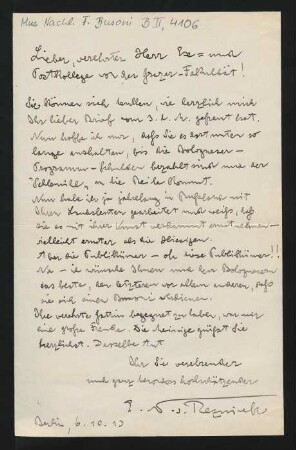 Mus. Nachl. F. Busoni B II, 4106
Lieber, verehrter Herr Ex= und
Postkollege von der Grazer-Fakultät!
Sie können sich denken, wie herzlich mich
Ihr lieber Brief vom 3. d. M. gefreut hat.
Nun hoffe ich nur, daß Sie es dort unten so
lange aushalten, bis die Bologneser-
Programm-Schulden bezahlt sind und der
"Schlemihl" an die Reihe kommt.
Nun habe ich ja jahrelang in Rußland mit
Ihren Landsleuten gearbeitet und weiß, daß
sie es mit ihrer Kunst verdammt ernst nehmen -
vielleicht ernster als die Hiesigen.
Aber die Publikümer - oh diese Publikümer!!
Na - ich wünsche Ihnen und den Bolognesern
das beste, den letzteren vor allem anderen, daß
sie sich einen Busoni verdienen.
Ihre verehrte Gattin begegnet zu haben, war mir
eine große Freude. Die meinige grüßt Sie
herzlichst. Derselbe tut
Ihr Sie verehrender
und ganz besonders hochschätzender
E. N. v. Reznicek
Berlin, 6. 10. 13